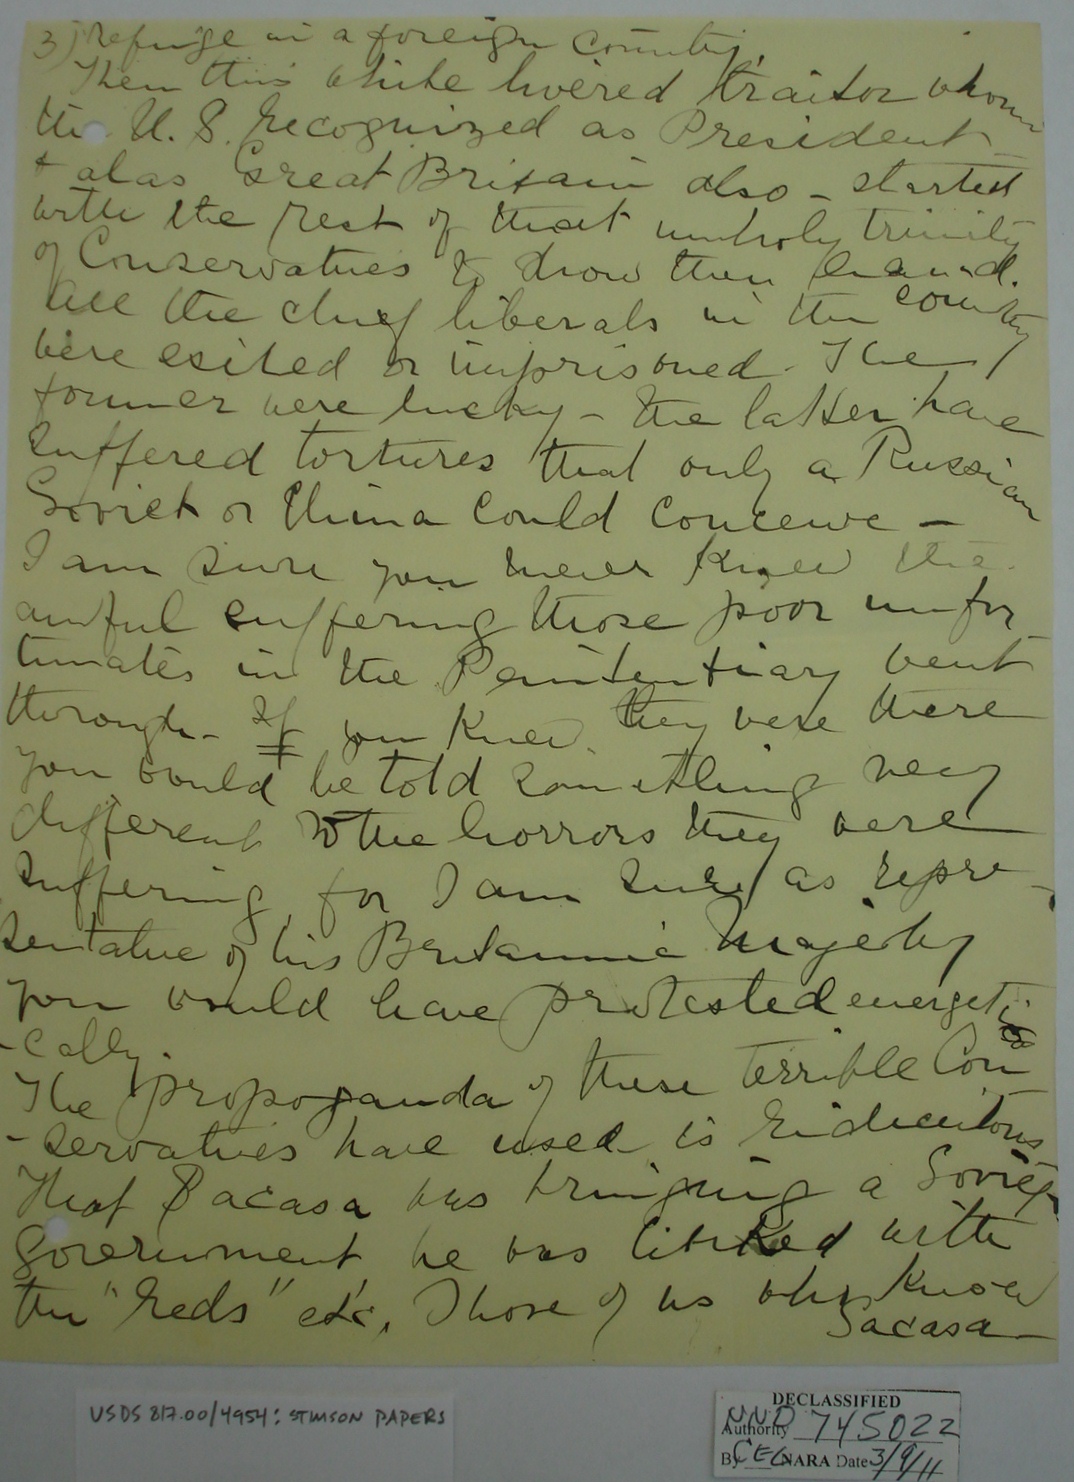 3) refuge in a foreign country.
Then this white livered traitor whom
the U. S. recognized as President -
+ alas Great Britain also - started
with the rest of that unholy trinity
of Conservatives to show their hand.
All the chief liberals in the country
were exiled or imprisoned. The
former were lucky - the latter have
suffered tortures that only a Russian
Soviet or China could conceive -
I am sure you never knew the
awful suffering those poor unfor-
tunates in the Penitentiary went
through - If you knew they were there
you would be told something very
different to the horrors they were
suffering, for I am sure as repre-
sentative of his Britannic Majesty
you would have protested energeti
-cally.
The propoganda of these terrible Con
-servatives have used is ridiculous
That Sacasa was bringing a Soviet
government he was linked with
the "Reds" etc. Those of us who know
Sacasa -
USDS 817.00/4954: STIMSON PAPERS
DECLASSIFIED
Authority NND 745022
By CEL NARA Date 3/9/11